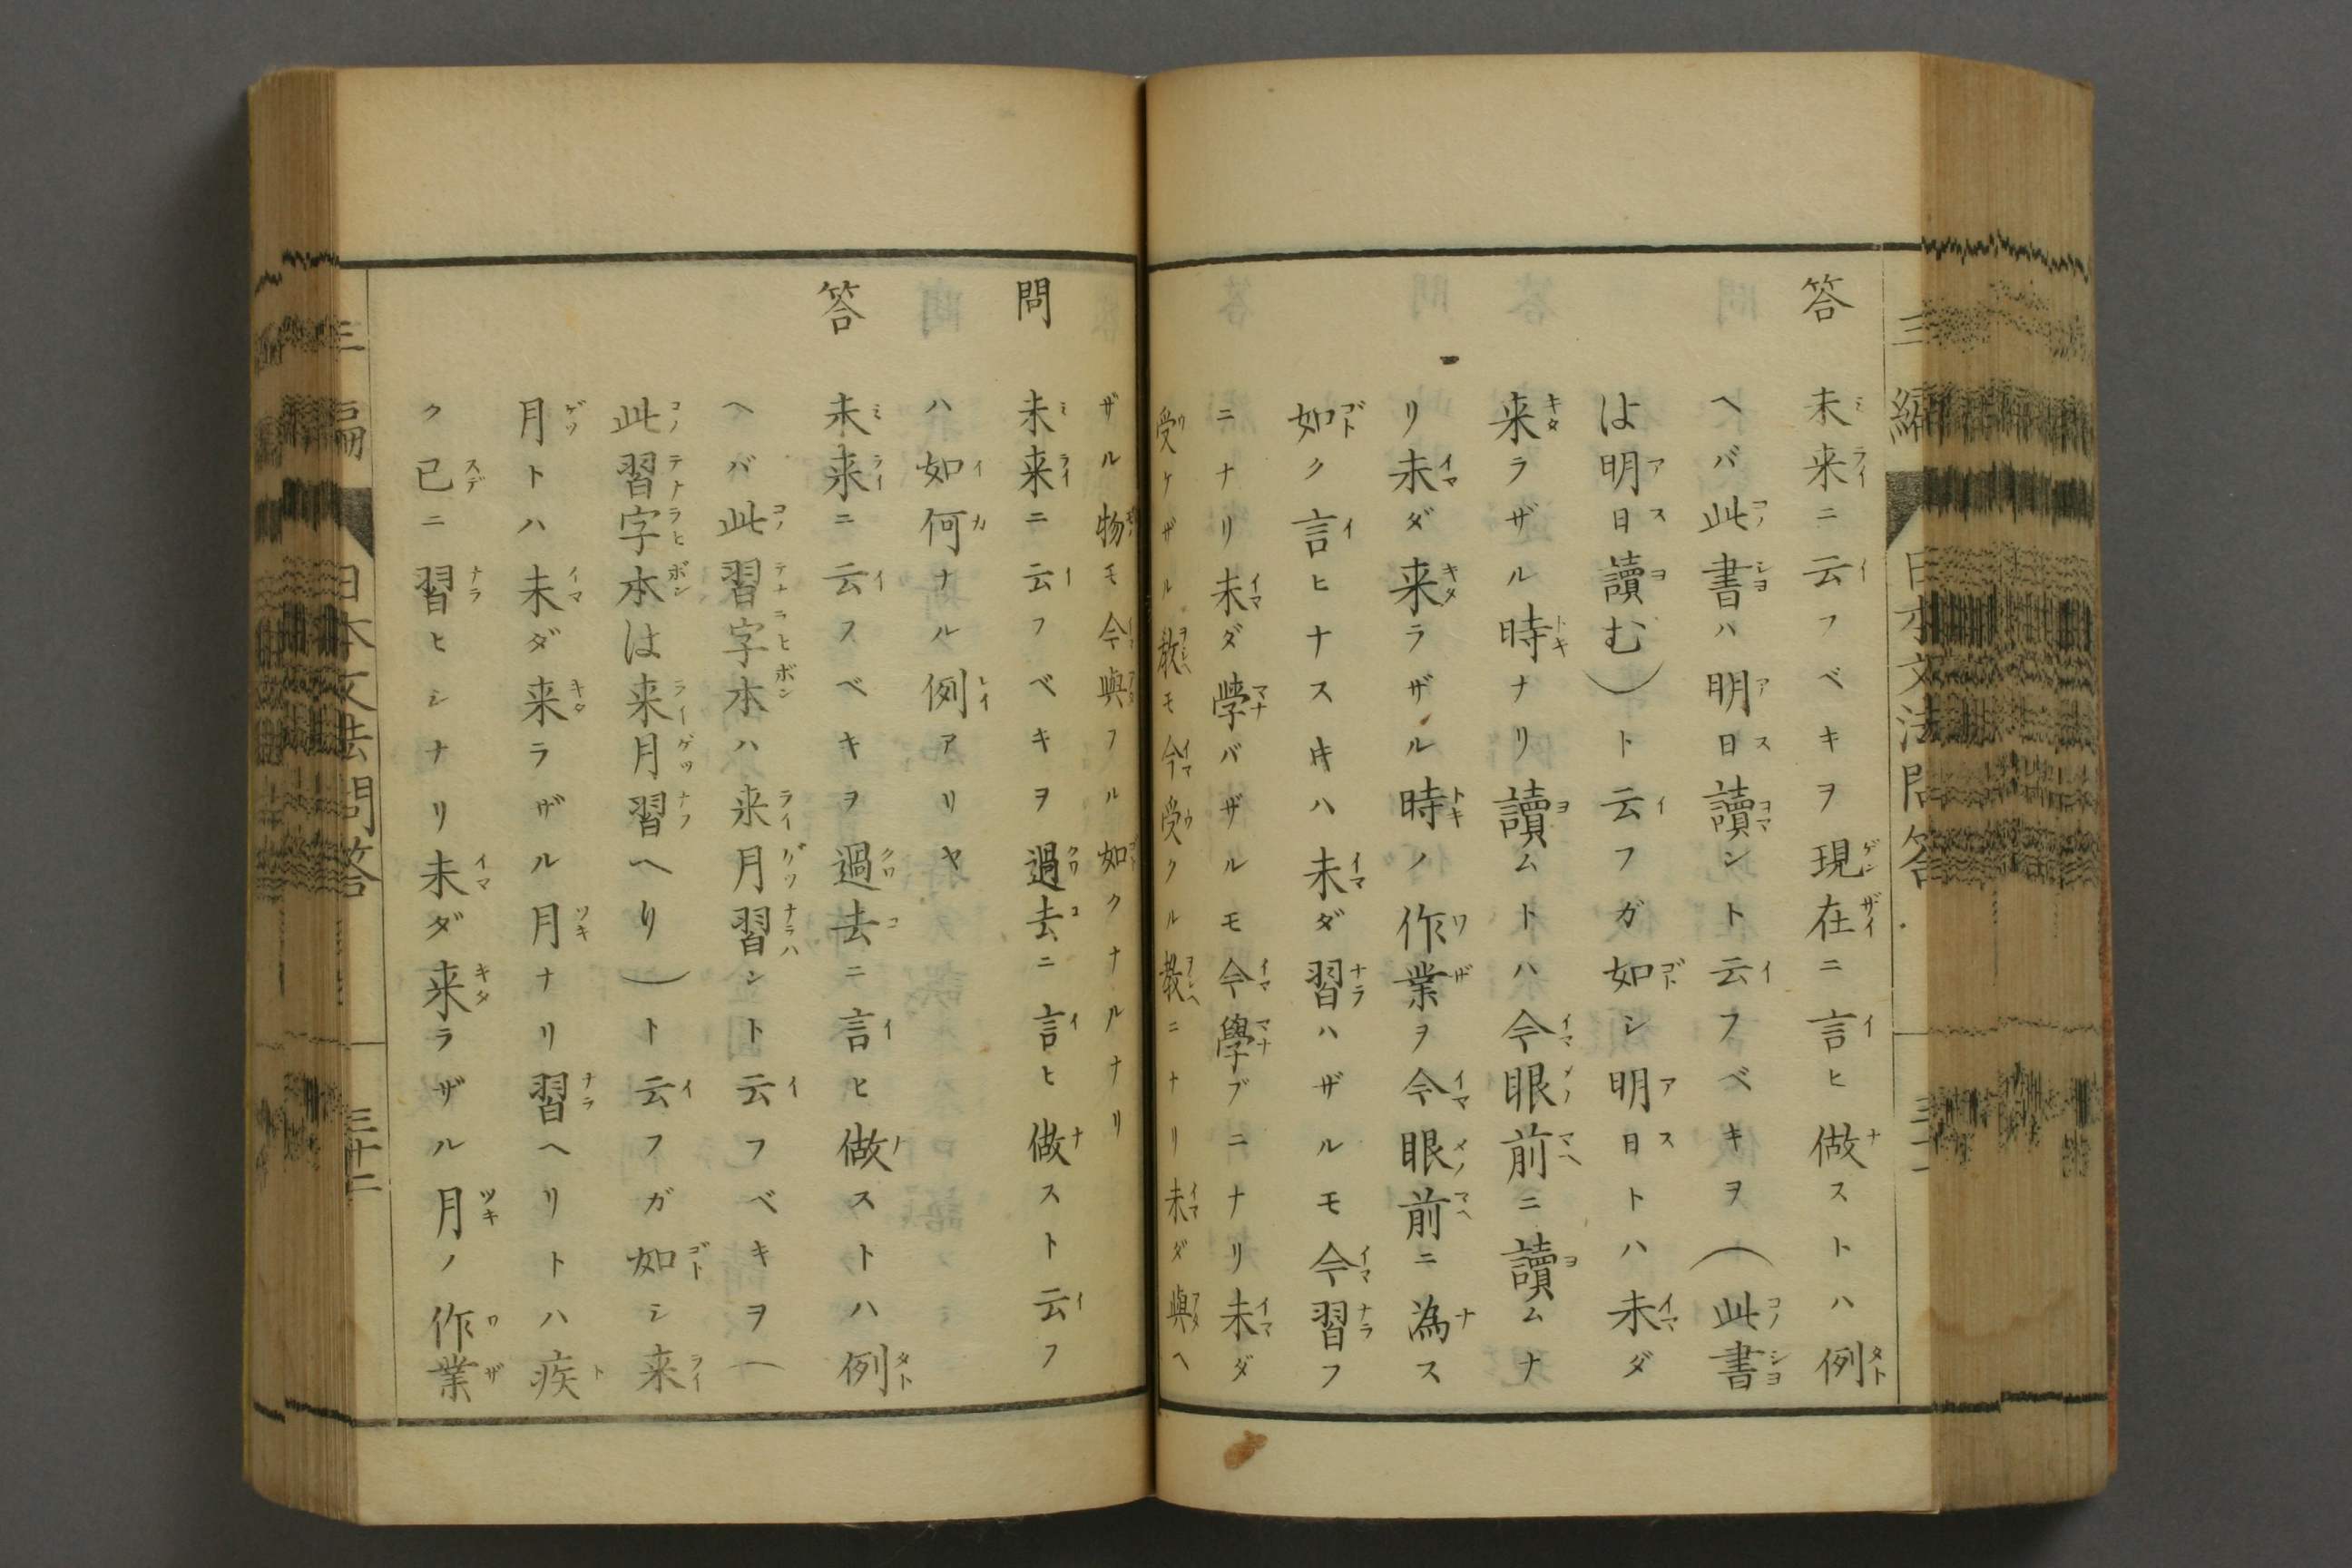 三編 日本文法問答 三十一
答 未来ニ云フベキヲ現在ニ言ヒ做ストハ例
ヘバ此書ハ明日讀ント云フベキヲ（此書
は明日讀む）ト云フガ如シ明日トハ未ダ
来ラザル時ナリ讀ムトハ今眼前ニ讀ムナ
リ未ダ来ラザル時ノ作業ヲ今眼前ニ為ス
如ク言ヒナスヰハ未ダ習ハザルモ今習フ
ニナリ未ダ學バザルモ今學ブニナリ未ダ
受ケザル教モ今受クル教ニナリ未ダ與ヘ
ザル物モ今與フル如クナルナリ
問 未来ニ云フベキヲ過去ニ言ヒ做スト云フ
ハ如何ナル例アリヤ
答 未来ニ云フベキヲ過去ニ言ヒ做ストハ例
ヘバ此習字本ハ来月習ント云フベキヲ（
此習字本は来月習へり）ト云フガ如シ来
月トハ未ダ来ラザル月ナリ習ヘリトハ疾
ク已ニ習ヒシナリ未ダ来ラザル月ノ作業
三編 日本文法問答 三十二